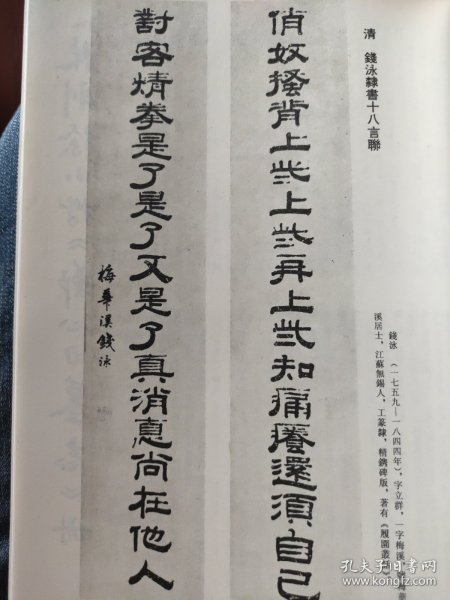 清 錢泳隸書十八言聯
錢泳（一七五九—一八四四年），字立群，一字梅溪
溪居士，江蘇無錫人，工篆隸，精鐫碑版，著有《履園叢
俏奴搔背上些上些再上些知痛癢還須自己
對客猜拳是了是了又是了真消息尚在他人
梅華溪錢泳
孔夫子旧书网